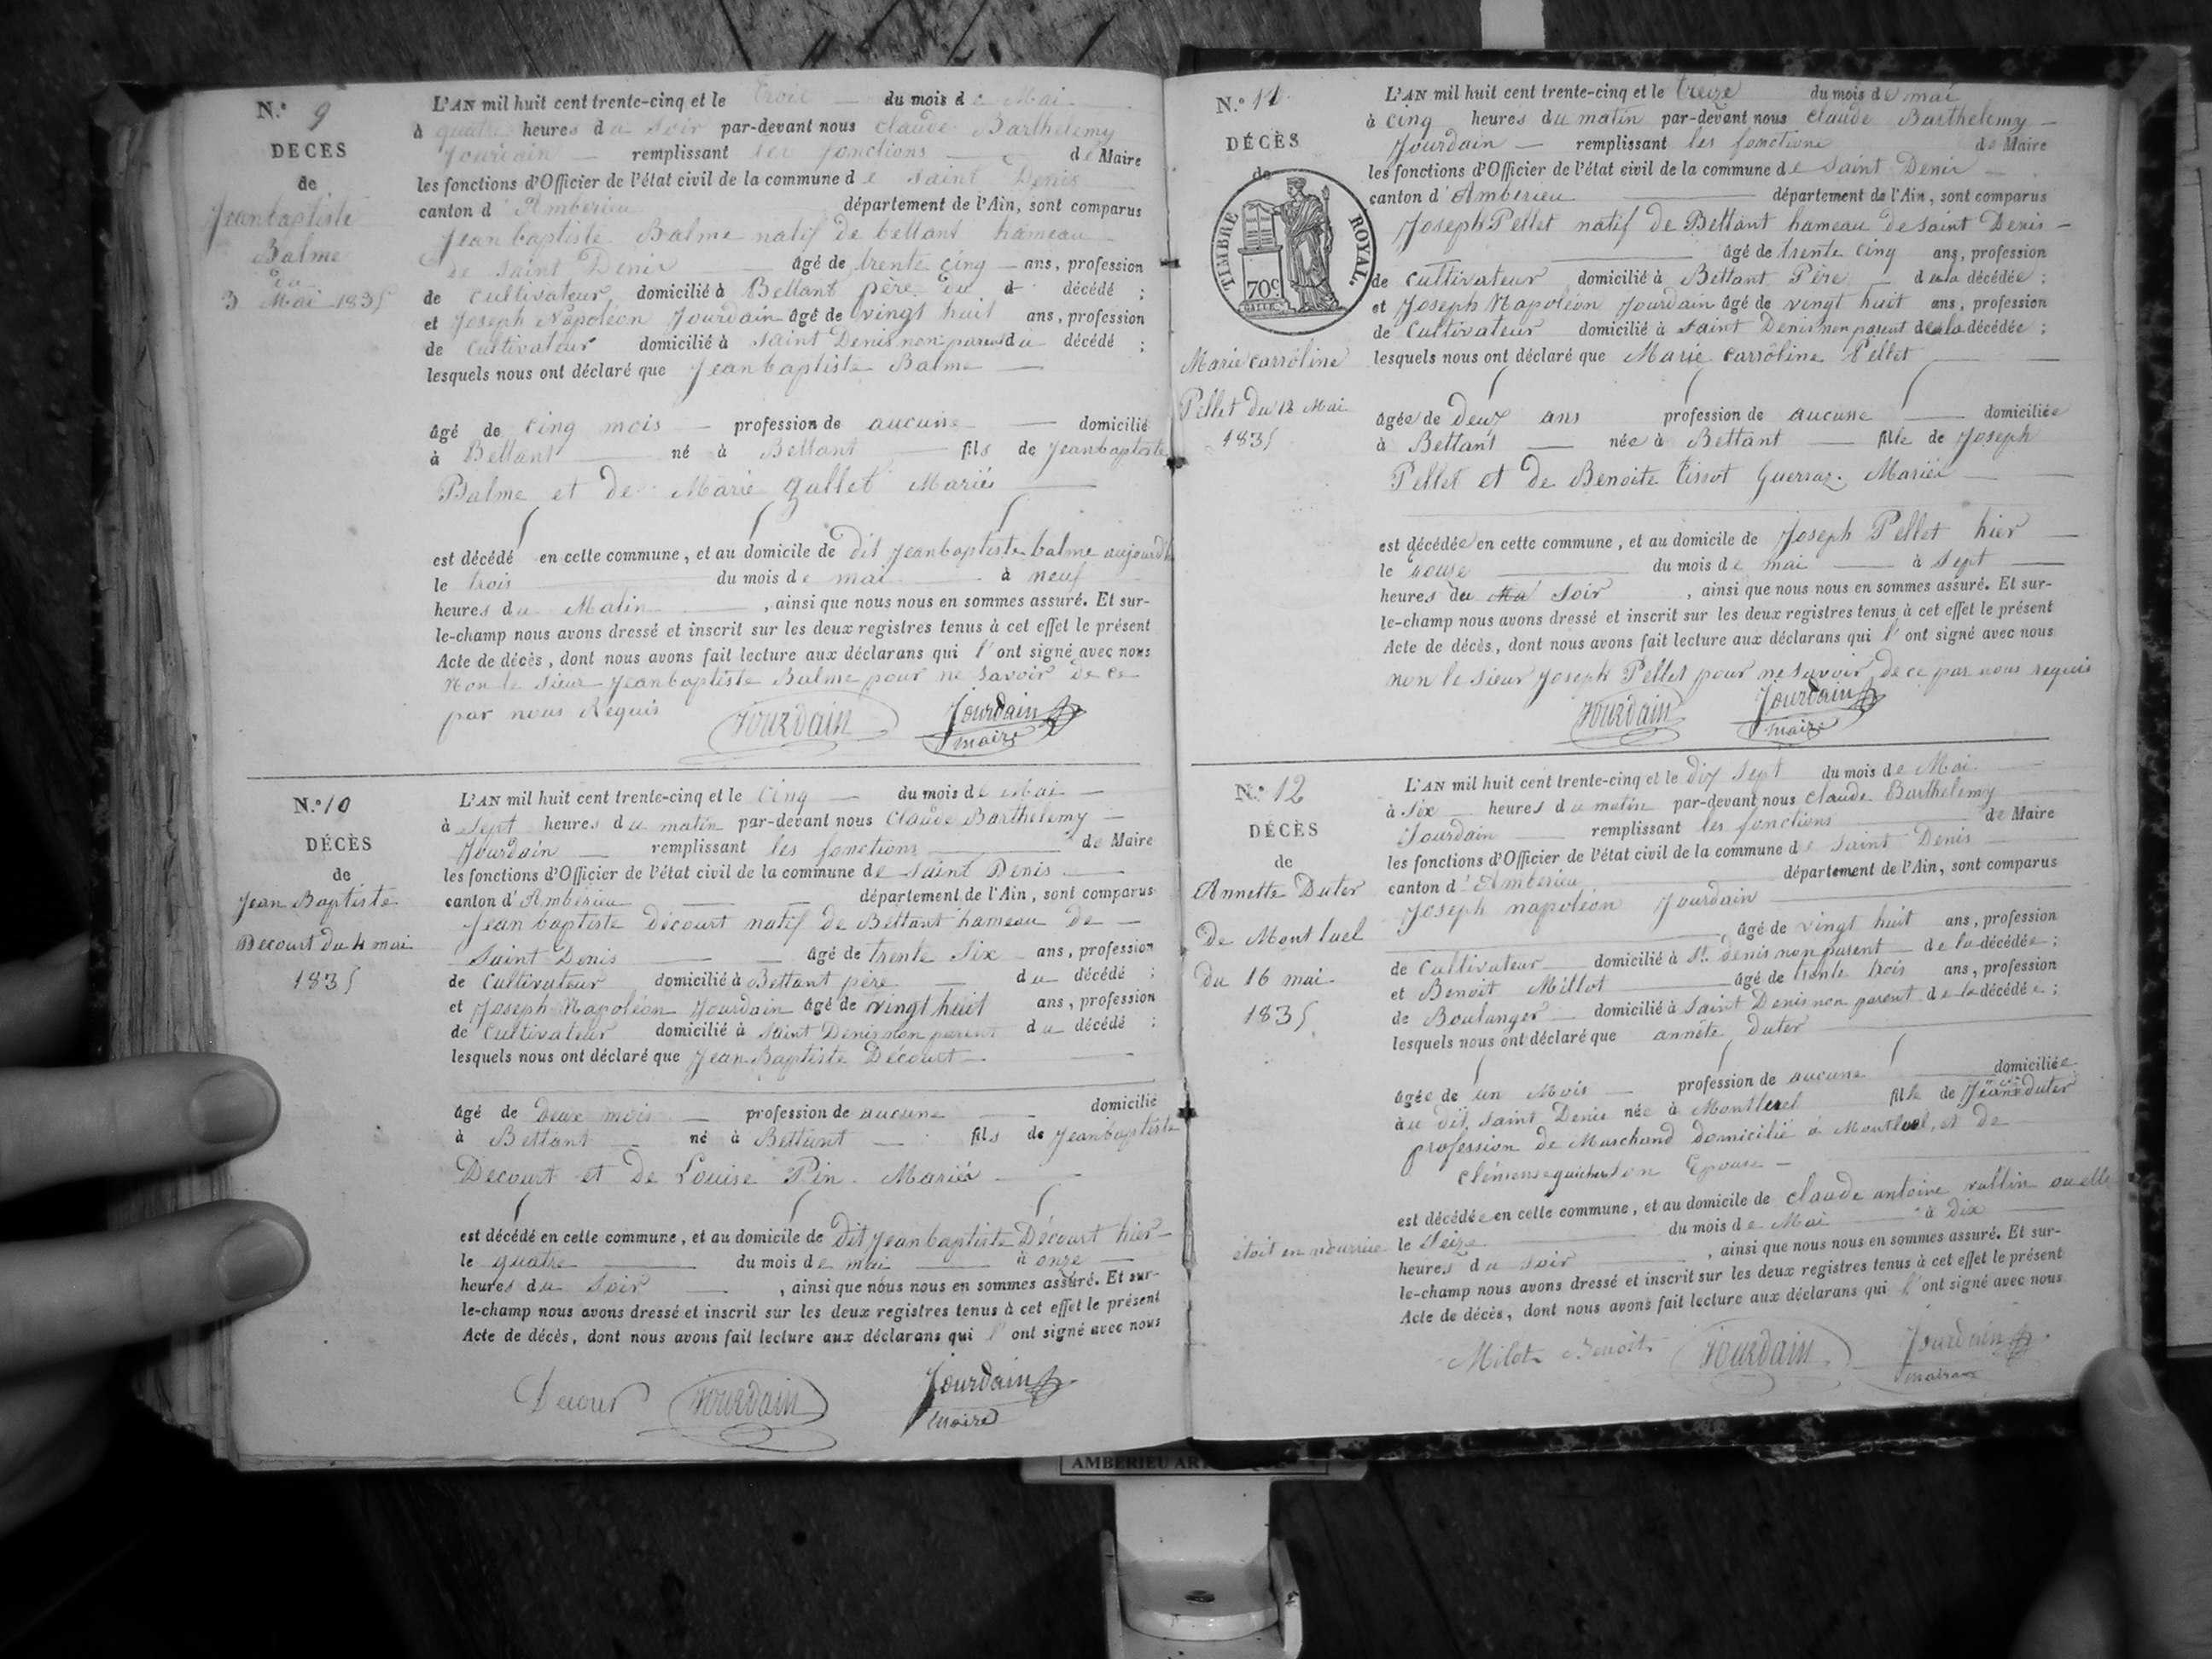 N.° 9
DECES
de
Jeanbaptiste
Balme
du
3 Mai 1835
L'AN mil huit cent trente-cinq et le trois du mois de Mai
à quatre heures du Soir par-devant nous claude Barthelemy
Jourdain remplissant les fonctions de Maire
les fonctions d'Officier de l'état civil de la commune de Saint Denis
canton d'Amberieu département de l'Ain, sont comparus
Jean baptiste Balme natif de bettant hameau
de Saint Denis âgé de trente cinq ans, profession
de Cultivateur domicilié à Bettant père du décédé ;
et Joseph Napoléon Jourdain âgé de vingt huit ans, profession
de Cultivateur domicilié à Saint Denis non parent du décédé ;
lesquels nous ont déclaré que Jeanbaptiste Balme
âgé de Cinq mois profession de aucune domicilié
à Bettant né à Bettant fils de Jeanbaptiste
Balme et de Marie gallet Mariés
est décédé en cette commune, et au domicile de dit Jeanbaptiste balme aujourd'h
le trois du mois de mai à neuf
heures du Matin , ainsi que nous nous en sommes assuré. Et sur-
le-champ nous avons dressé et inscrit sur les deux registres tenus à cet effet le présent
Acte de décès, dont nous avons fait lecture aux déclarans qui l'ont signé avec nous
Non le sieur Jeanbaptiste Balme pour ne savoir de ce
par nous Requis
Jourdain Jourdain
maire
N.° 10
DÉCÈS
de
Jean Baptiste
Decourt du 4 mai
1835
L'AN mil huit cent trente-cinq et le Cinq du mois de Mai
à Sept heures du matin par-devant nous Claude Barthelemy
Jourdain remplissant les fonctions de Maire
les fonctions d'Officier de l'état civil de la commune de Saint Denis
canton d'Ambérieu département de l'Ain, sont comparus
Jean baptiste Décourt natif de Bettant hameau de
Saint Denis âgé de trente Six ans, profession
de Cultivateur domicilié à Bettant père du décédé ;
et Joseph Napoléon Jourdain âgé de vingt huit ans, profession
de Cultivateur domicilié à Saint Denis non parent du décédé ;
lesquels nous ont déclaré que Jean Baptiste Décourt
âgé de Deux mois profession de aucune domicilié
à Bettant né à Bettant fils de Jeanbaptiste
Decourt et de Louise Pin Mariés
est décédé en cette commune, et au domicile de dit Jeanbaptiste Décourt hier
le quatre du mois de mai à onze
heures du Soir , ainsi que nous nous en sommes assuré. Et sur-
le-champ nous avons dressé et inscrit sur les deux registres tenus à cet effet le présent
Acte de décès, dont nous avons fait lecture aux déclarans qui l'ont signé avec nous
Decour Jourdain Jourdain
maire
N.° 11
DÉCÈS
de
TIMBRE ROYAL.
70c
Marie carroline
Pellet du 12 Mai
1835
L'AN mil huit cent trente-cinq et le treize du mois de mai
à cinq heures du matin par-devant nous Claude Barthelemy
Jourdain remplissant les fonctions de Maire
les fonctions d'Officier de l'état civil de la commune de Saint Denis
canton d'Amberieu département de l'Ain, sont comparus
Joseph Pellet natif de Bettant hameau de saint Denis
âgé de trente cinq ans, profession
de Cultivateur domicilié à Bettant Père de la décédée ;
et Joseph Napoléon Jourdain âgé de vingt huit ans, profession
de Cultivateur domicilié à saint Denis non parent de la décédée ;
lesquels nous ont déclaré que Marie carroline Pellet
âgée de Deux ans profession de aucune domiciliée
à Bettant née à Bettant fille de Joseph
Pellet et de Benoite tissot Guerraz. Mariés
est décédée en cette commune, et au domicile de Joseph Pellet hier
le Douse du mois de mai à Sept
heures du Ma Soir , ainsi que nous nous en sommes assuré. Et sur-
le-champ nous avons dressé et inscrit sur les deux registres tenus à cet effet le présent
Acte de décès, dont nous avons fait lecture aux déclarans qui l'ont signé avec nous
non le sieur Joseph Pellet pour ne savoir de ce par nous requis
Jourdain Jourdain
maire
N.° 12
DÉCÈS
de
Annette Duter
de Montluel
du 16 mai
1835
L'AN mil huit cent trente-cinq et le dix Sept du mois de Mai
à Six heures du matin par-devant nous Claude Barthelemy
Jourdain remplissant les fonctions de Maire
les fonctions d'Officier de l'état civil de la commune de Saint Denis
canton d'Amberieu département de l'Ain, sont comparus
Joseph napoléon Jourdain
âgé de vingt huit ans, profession
de Cultivateur domicilié à St. denis non parent de la décédée ;
et Benoit Millot âgé de trente trois ans, profession
de Boulanger domicilié à Saint Denis non parent de la décédée ;
lesquels nous ont déclaré que annéte duter
âgée de un Mois profession de aucune domiciliée
à au dit Saint Denis née à Montluel fille de duter
profession de Marchand domicilié à Montluel, et de
son Epouse
est décédée en cette commune, et au domicile de claude antoine vallin ou elle
étoit en nourrice le Seize du mois de Mai à dix
heures du Soir , ainsi que nous nous en sommes assuré. Et sur-
le-champ nous avons dressé et inscrit sur les deux registres tenus à cet effet le présent
Acte de décès, dont nous avons fait lecture aux déclarans qui l'ont signé avec nous
Milot Benoit Jourdain Jourdain
maire
AMBERIEU